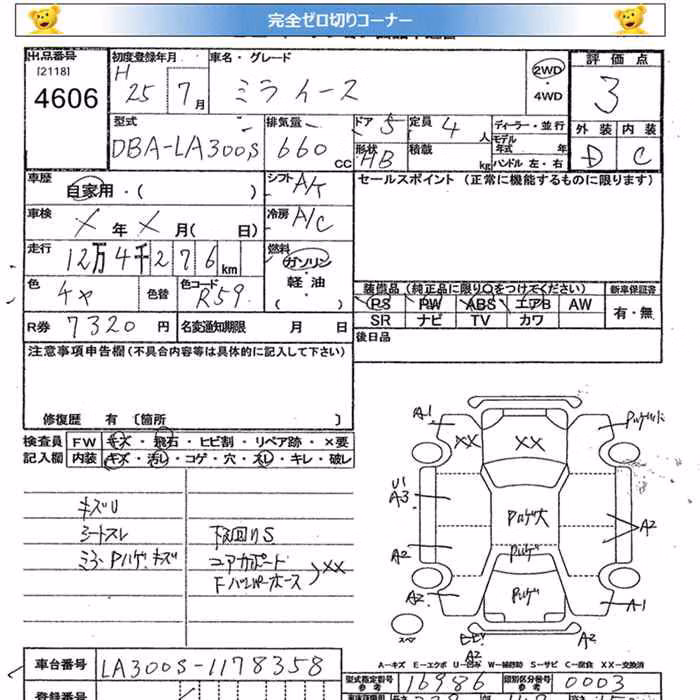 完全ゼロ切りコーナー
出品番号
[2118]
4606
初度登録年月
H
25 7月
車名・グレード
ミライース
2WD
・
4WD
評価点
3
型式
DBA-LA300S
排気量
660 CC
ドア 5
定員 4人
形状 HB
積載 kg
ディーラー・並行
モデル
年式 年
ハンドル 左・右
外装 内装
D C
車歴
自家用・( )
シフト A/T
セールスポイント (正常に機能するものに限ります)
車検
X年X月( 日)
冷房 A/C
走行
12万4千276km
燃料
ガソリン
・
軽油
( )
色
チャ
色替
色コード
R59
装備品(純正品に限り○をつけてください)
新車保証書
PS PW ABS エアB AW
SR ナビ TV カワ
有・無
R券 7320円
名変通知期限 月 日
後日品
注意事項申告欄(不具合内容等は具体的に記入して下さい)
修復歴 有〔箇所 〕
検査員 FW キズ・飛石・ヒビ割・リペア跡・×要
記入欄 内装 キズ・汚レ・コゲ・穴・スレ・キレ・破レ
キズU
シートスレ
ミラーPハゲ・キズ
下回りS
コアサポート
Fバンパーホース
XX
A1
XX
XX
U1
A3
Pハゲ大
A2
A2
Pハゲ
A2
Pハゲ
A1
スペア
A2
A2
A-キズ E-エクボ U-凹み W-補修跡 S-サビ C-腐食 XX-交換済
車台番号
LA300S-1178358
型式指定番号
参考
16986
類別区分番号
参考
0003
登録番号